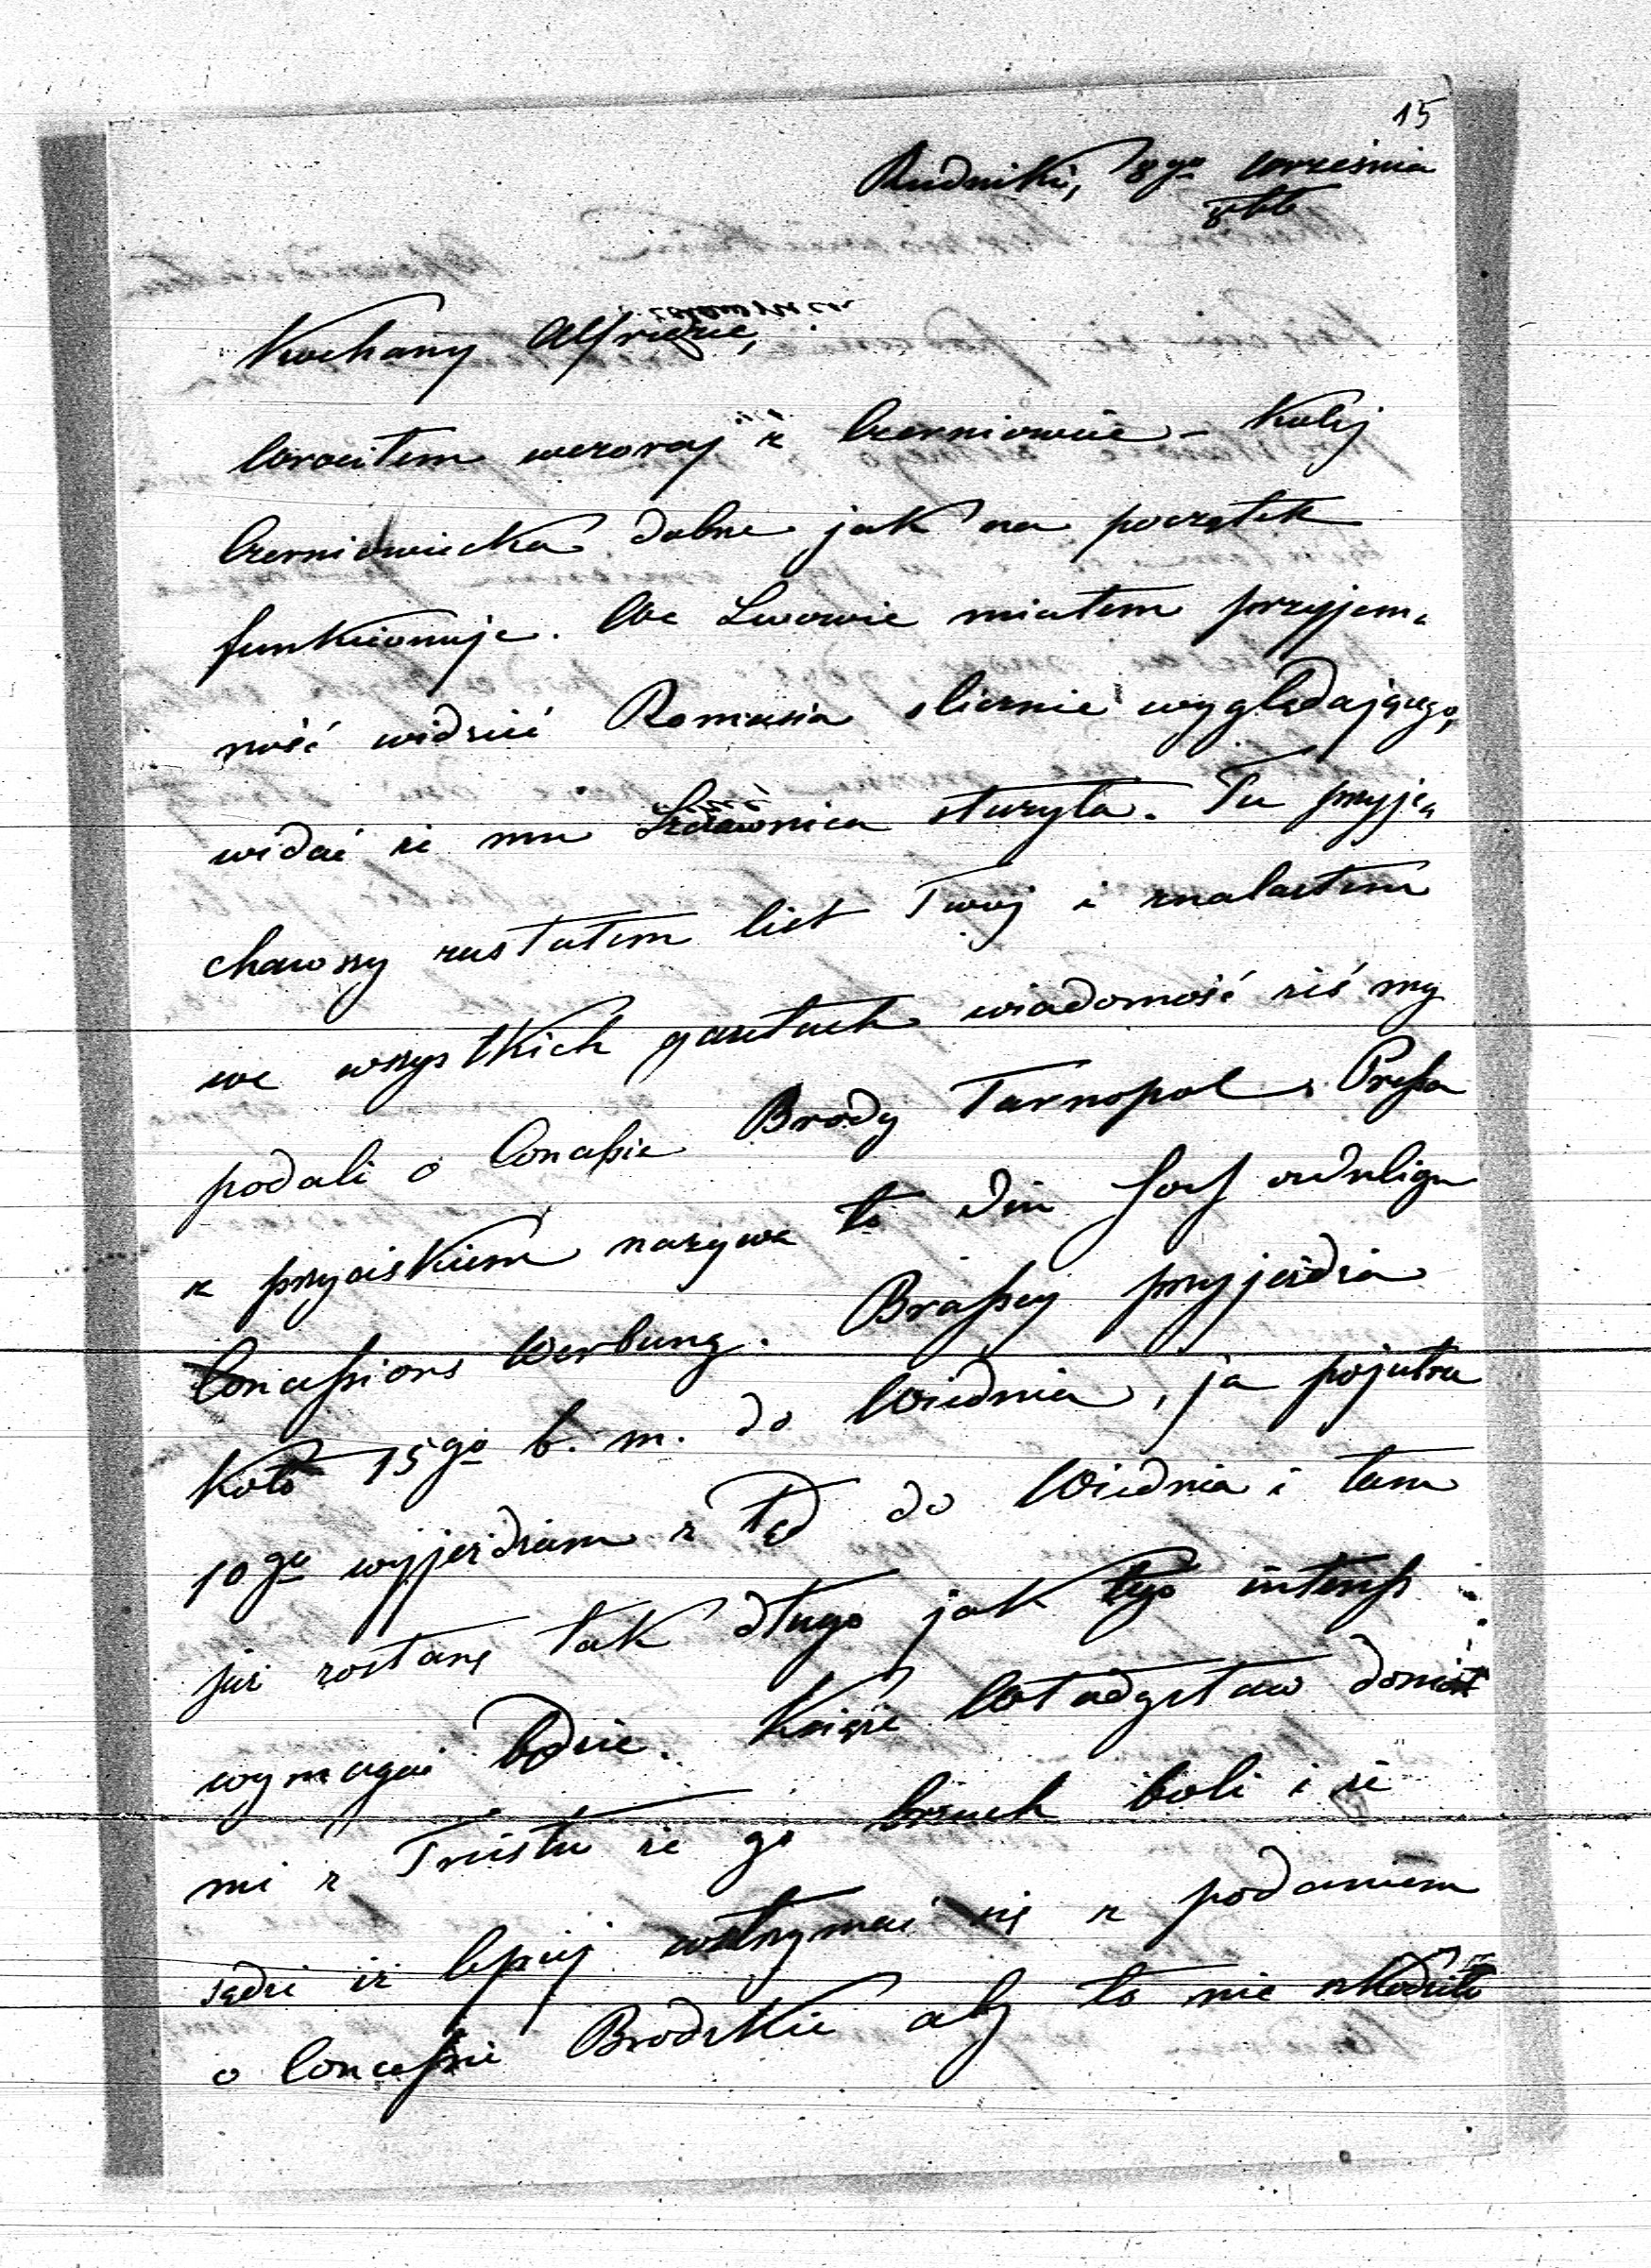 15
Rudniki, 8go września
866
Kochany Alfredzie,
Wrociłem wczoraj z Czerniowiec – Kolej
Czerniowiecka dobrze jak na początek
funkcionuje. We Lwowie miałem przyjem„
ność widzieć Romusia ślicznie wyglądającego,
widać że mu Szczawnica służyła. Tu przyje„
chawszy zastałem list Twoj i znalazłem
we wszystkich gazetach wiadomość żeś my
podali o Concessie Brody Tarnopol. Pressa
z przyciskiem nazywa to die
Concessions Werbung. Brassey przyjeżdża
koło 15go b. m. do Wiednia, ja pojutrze
10go wyjeżdżam z tąd do Wiednia i tam
już zostanę tak długo jak tego interess
wymagać będzie. Książe Władysław doniósł
mi z Triestu że go brzuch boli i że
sądzi iż lepiej wstrzymać się z podaniem
o Concessie Brodzkie aby to nie szkodziło